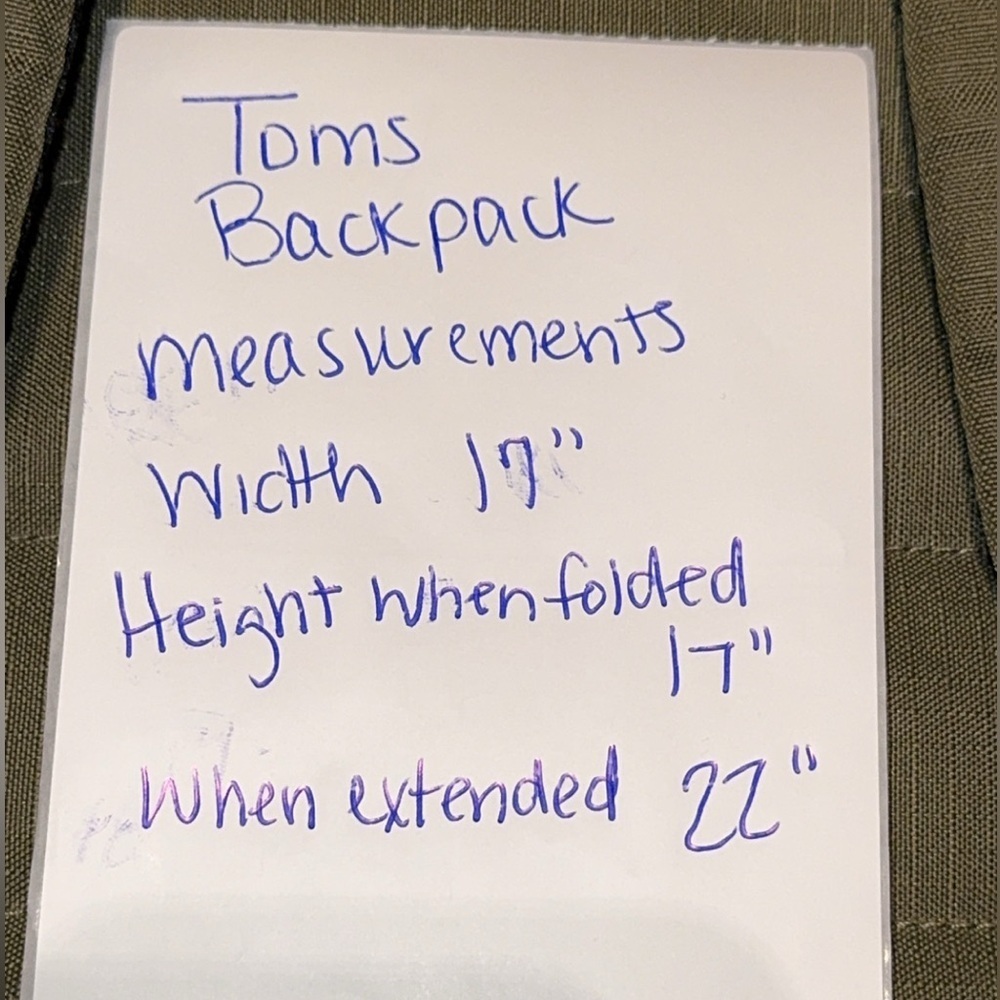 Toms
Backpack
measurements
Width 17"
Height when folded
17"
When extended 22"